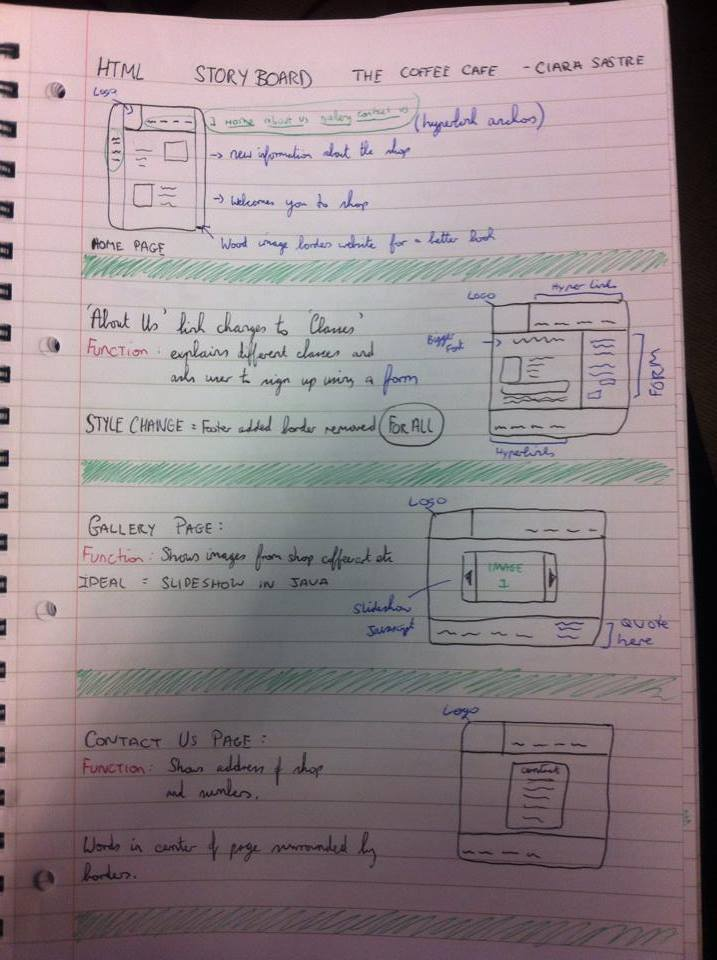 HTML STORY BOARD THE COFFEE CAFE - CIARA SASTRE
Logo
Home About us gallery contact us
(hyperlink anchos)
→ new information about the shop
→ Welcomes you to shop
Wood image borders website for a better look
HOME PAGE
'About Us' link changes to 'Classes'
Function: explains different classes and
asks user to sign up using a form
STYLE CHANGE = Footer added border removed FOR ALL
Logo
Hyper Links
Bigger Font
FORM
Hyperlinks
GALLERY PAGE:
Function: Shows images from shop etc
IDEAL = SLIDESHOW IN JAVA
LOGO
IMAGE
1
Slideshow
Javascript
QUOTE
here
CONTACT US PAGE:
Function: Shows address of shop
and numbers.
Words in center of page surrounded by
borders.
Logo
contact